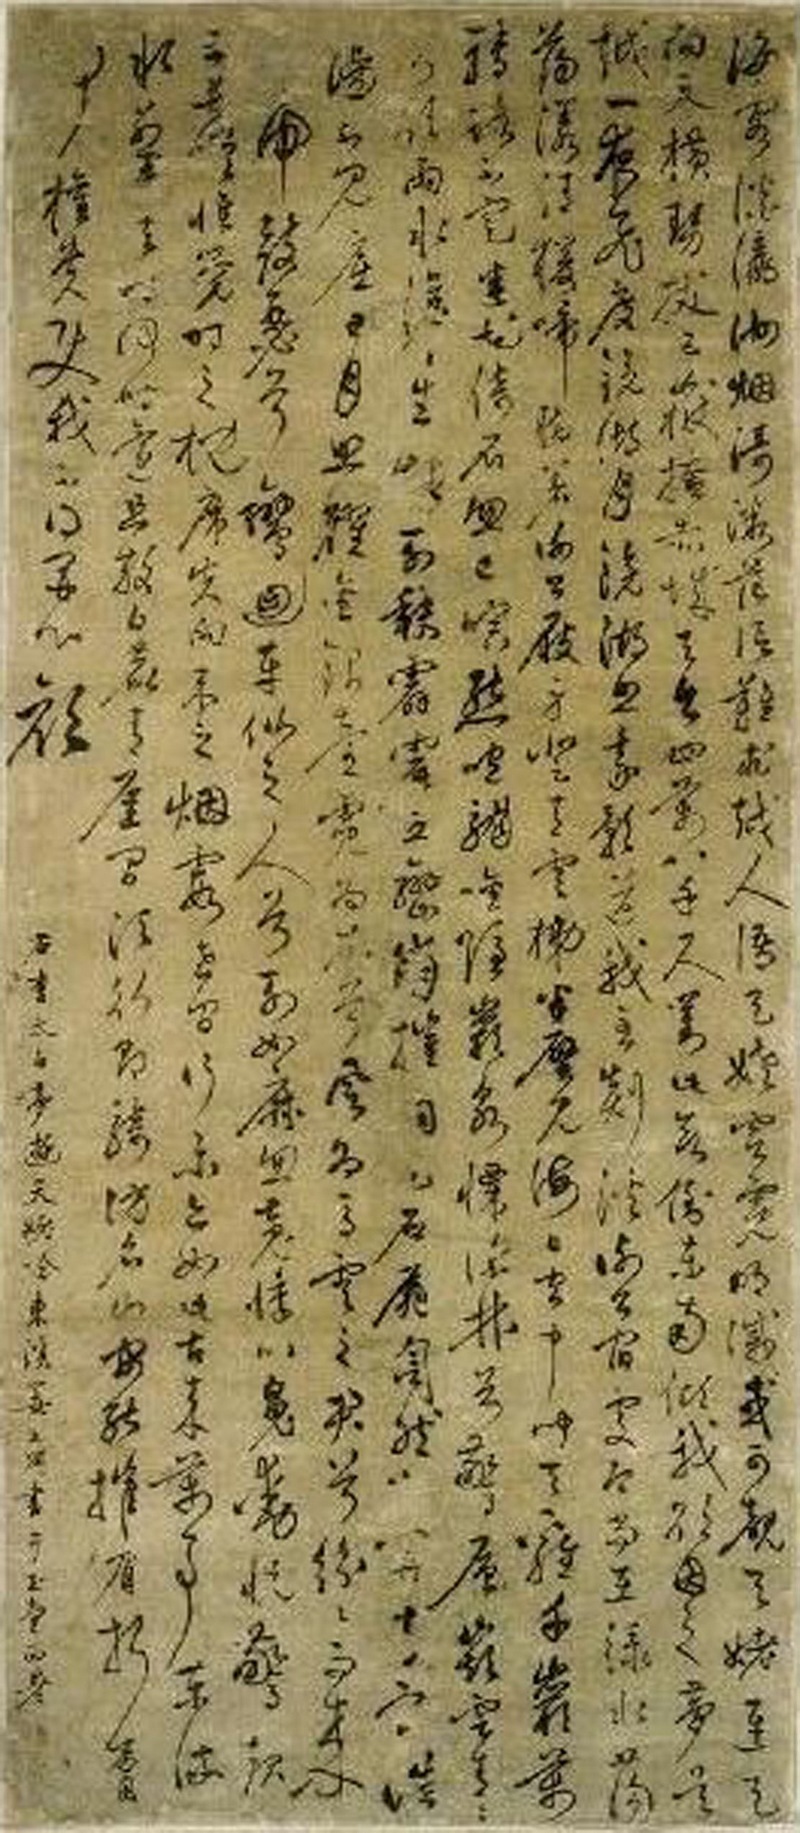 海客談瀛洲烟濤微茫信難求越人語天姥雲霓明滅或可覩天姥連天
向天橫勢拔五嶽掩赤城天台四萬八千尺對此欲倒東南傾我欲因之夢吳
越一夜飛度鏡湖月鏡湖照我影送我至剡溪謝公宿處今尚在淥水蕩
蕩漾清猨啼脚著謝公屐身登青雲梯半壁見海日空中聞天雞千巖萬
轉路不定迷花倚石忽已暝熊咆龍吟殷巖泉慄深林兮驚層巔雲青青
兮欲雨水澹澹生煙列缺霹靂丘巒崩摧洞天石扉訇然中開青冥浩
蕩不見底日月照耀金銀臺霓為衣兮風為馬雲之君兮紛紛而來下
虎鼓瑟兮鸞回車仙之人兮列如麻忽魂悸以魄動怳驚起
而長嗟惟覺時之枕席失向來之烟霞世間行樂亦如此古來萬事東流
水別君去時何時還且放白鹿青崖間須行即騎訪名山安能摧眉折腰
事權貴使我不得開心顏
右書太白夢遊天姥吟東書于玉堂西署